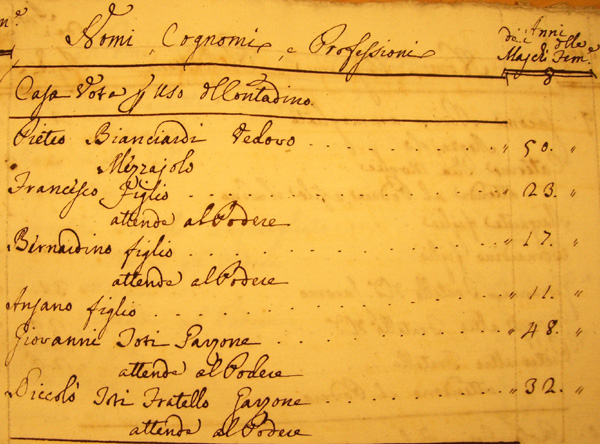 Nomi, Cognomi, e Professioni
Anni
de Maschi delle Fem.e
Casa Vota p uso del Contadino
Pietro Bianciardi Vedovo . . . . . . " 50. "
Mezzajolo
Francesco Figlio . . . . . . . . . " 23. "
attende al Podere
Bernardino figlio . . . . . . . . . " 17. "
attende al Podere
Ansano figlio . . . . . . . . . . " 11. "
Giovanni Tosi Garzone . . . . . . " 48. "
attende al Podere
Niccolò Tosi Fratello Garzone . . . . . " 32. "
attende al Podere